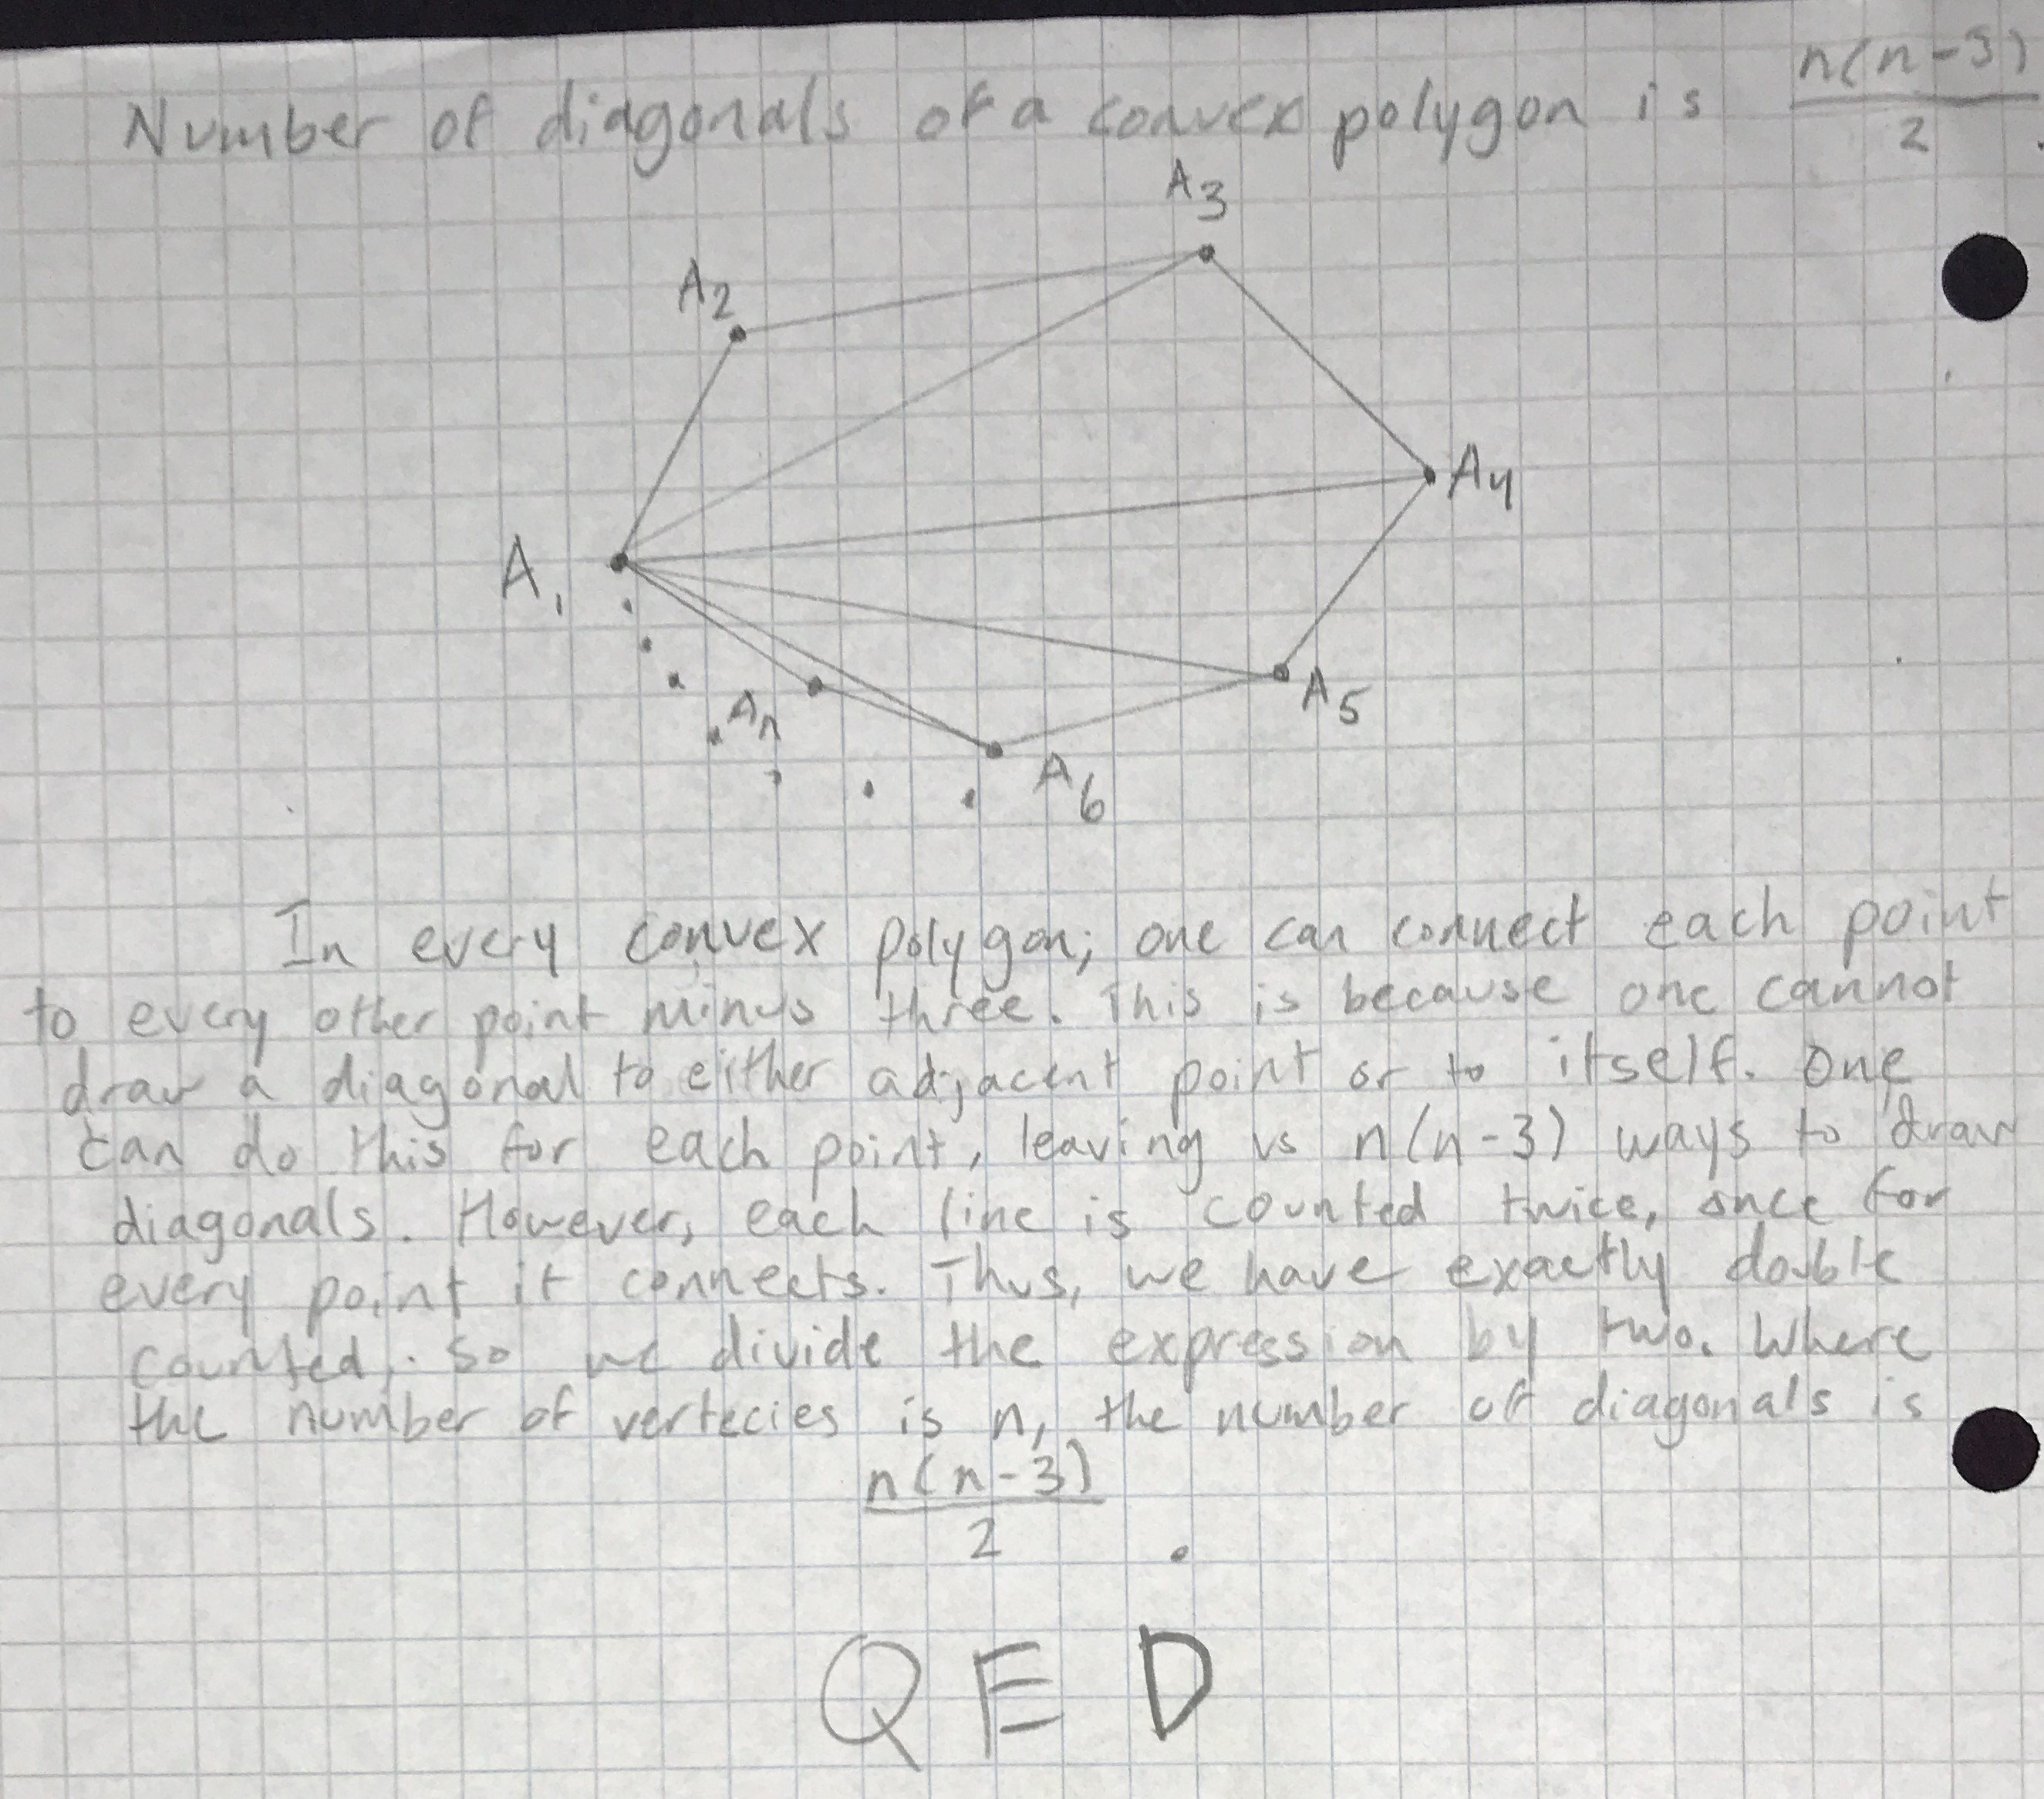 Number of diagonals of a convex polygon is n(n-3)/2.
A3
A2
A4
A1
A5
An
A6
In every convex polygon; one can connect each point
to every other point minus three. This is because one cannot
draw a diagonal to either adjacent point or to itself. One
can do this for each point, leaving us n(n-3) ways to draw
diagonals. However, each line is counted twice, once for
every point it connects. Thus, we have exactly double
counted, so we divide the expression by two. Where
the number of vertecies is n, the number of diagonals is
n(n-3)
2 .
QED